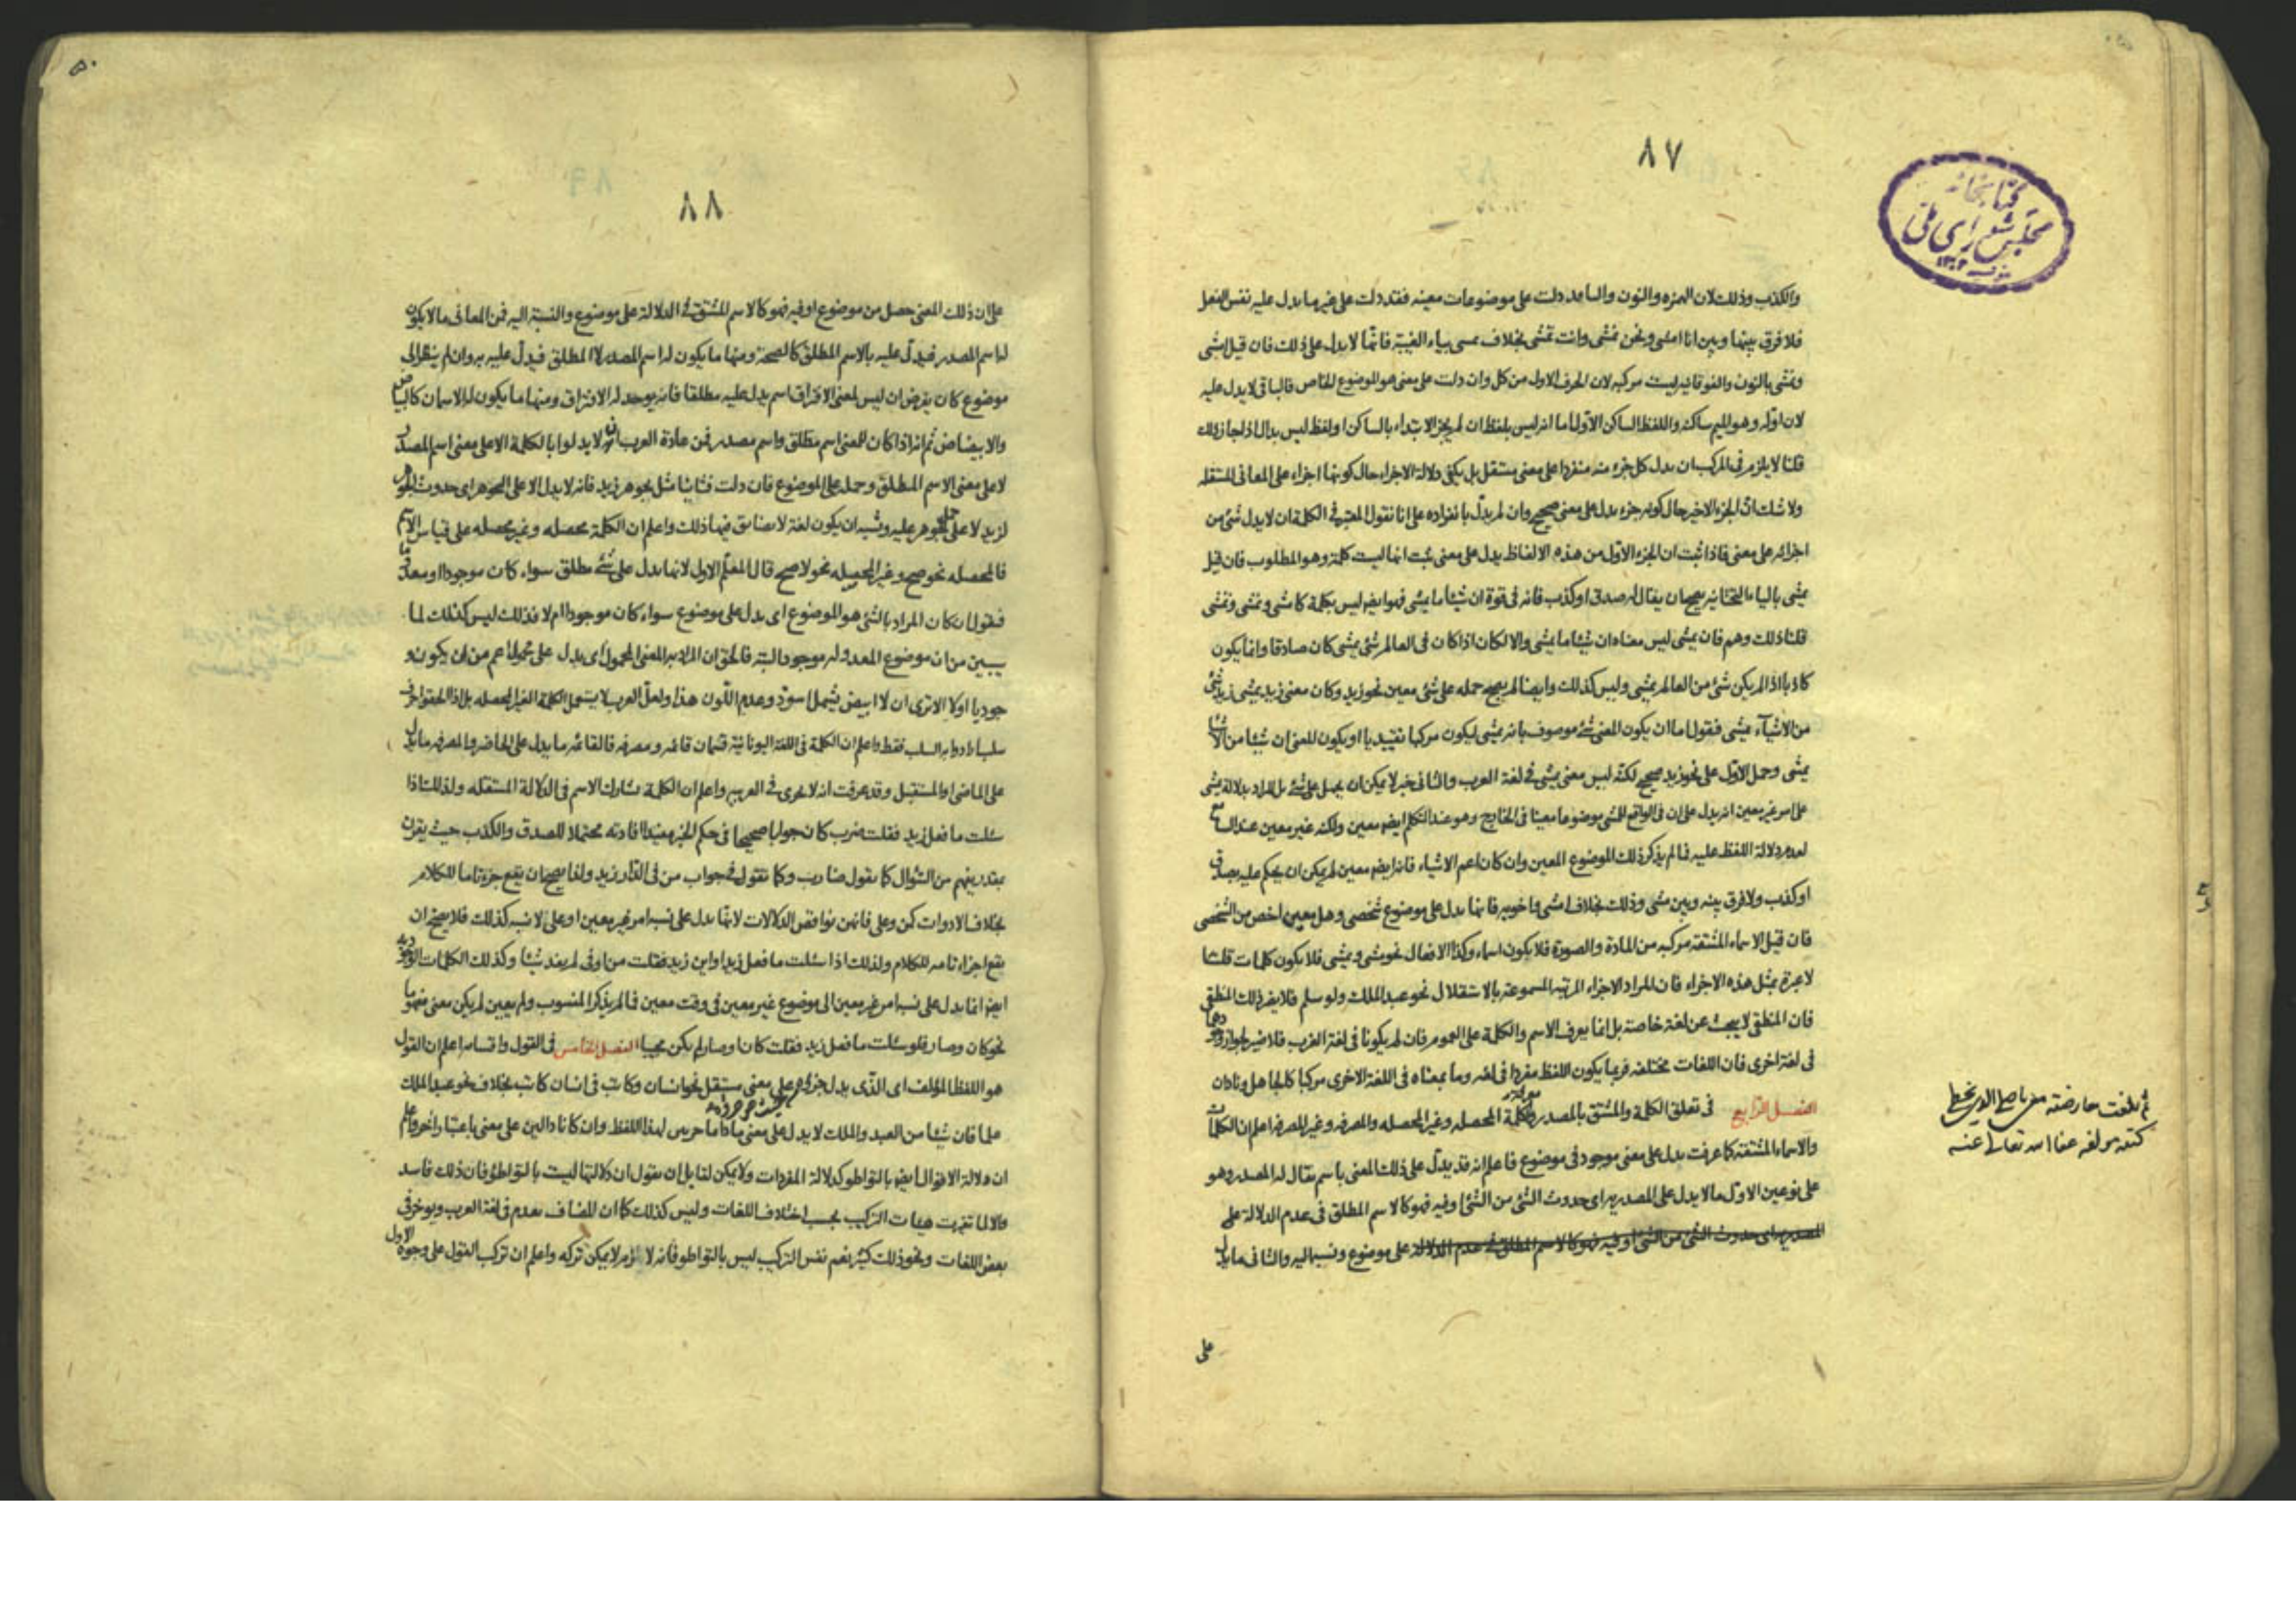 ٨٧
كتابخانه
مجلس شورای ملی
والكذب وذلك لان الهمزه والنون والتا قد دلت على موضوعات معينه فقد دلت على غير ما يدل عليه نفس الفعل
فلا فرق بينها وبين انا امشى ونحن نمشى وانت تمشى بخلاف يمشى بياء الغيبة فانها لا يدل على ذلك فان قيل امشى
ونمشى بالنون والفوقانيه ليست مركبه لان الحرف الاول من كل وان دلت على معنى هو الموضوع الخاص فالباقى لا يدل عليه
لان اوله وهو الميم ساكنه واللفظ الساكن الاول اما انه ليس بلفظ ان لم يجز الابتداء بالساكن او لفظ ليس بدال اذا جاز ذلك
قلنا لا يلزم فى المركب ان يدل كل جزء منه منفردا على معنى مستقل بل يكفى دلالة الاجزاء حال كونها اجزاء على المعانى المستقله
ولا شك ان الجزء الاخير حال كونه جزء يدل على معنى صحيح وان لم يدل بانفراده على انا نقول المعتبر فى الكلمة ان لا يدل شئ من
اجزائه على معنى فاذا ثبت ان الجزء الاول من هذه الالفاظ يدل على معنى ثبت انها ليست كلمة وهو المطلوب فان قيل
يمشى بالياء التحتانيه يصح ان يقال له صدق او كذب فانه فى قوة ان شيئا ما يمشى فهو ايضا ليس بكلمة كامشى ونمشى وتمشى
قلنا ذلك وهم فان يمشى ليس معناه ان شيئا ما يمشى والا لكان اذا كان فى العالم شئ يمشى كان صادقا وانما يكون
كاذبا اذا لم يكن شئ من العالم يمشى وليس كذلك وايضا لم يصح حمله على شئ معين نحو زيد وكان معنى زيد يمشى زيد شئ
من الاشياء يمشى فنقول اما ان يكون المعنى شئ موصوف بانه يمشى ليكون مركبا تقييديا او يكون المعنى ان شيئا من الاشيا
يمشى وحمل الاول على نحو زيد صحيح لكنه ليس معنى يمشى فى لغة العرب والثانى خبر لا يمكن ان يحمل على شئ بل المراد بدلالة يمشى
على امر غير معين انه يدل على ان فى الواقع للمشى موضوعا معينا فى الخارج وهو عند المتكلم ايضا معين ولكنه غير معين عند السامع
لعدم دلالة اللفظ عليه فما لم يذكر ذلك الموضوع المعين وان كان اعم الاشياء فانه ايضا معين لم يمكن ان يحكم عليه بصدق
او كذب ولا فرق بينه وبين مشى وذلك بخلاف امشى واخويه فانها يدل على موضوع شخصى وهل معين اخص من الشخصى
فان قيل الاسماء المشتقه مركبه من المادة والصورة فلا يكون اسماء وكذا الافعال نحو مشى ويمشى فلا يكون كلمات قلنا
لا عبرة بمثل هذه الاجزاء فان المراد الاجزاء المرتبه المسموعة بالاستقلال نحو عبد الملك ولو سلم فلا يضر ذلك المنطقى
فان المنطقى لا يبحث عن لغة خاصة بل انما يعرف الاسم والكلمة على العموم فان لم يكونا فى لغة العرب فلا ضير لجواز وجودهما
فى لغة اخرى فان اللغات مختلفه فربما يكون اللفظ مفردا فى لغه وما بمعناه فى اللغة الاخرى مركبا كالجاهل ونادان
الفصل الرابع فى تعلق الكلمة والمشتق بالمصدر والكلمة المحصله وغير المحصله والمصرفه وغير المصرفه اعلم ان الكلمات
والاسماء المشتقه كما عرفت يدل على معنى موجود فى موضوع فاعلم انه قد يدل على ذلك المعنى باسم يقال له المصدر وهو
على نوعين الاول ما لا يدل على المصدريه اى حدوث الشئ من الشئ او فيه فهو كالاسم المطلق فى عدم الدلالة على
المصدريه اى حدوث الشئ من الشئ او فيه فهو كالاسم المطلق فى عدم الدلالة على موضوع ونسبة اليه والثانى ما يدل
على
ثم بلغت معارضته باصله الذى بخط
كتبه مولفه عفا الله تعالى عنه
٥٠
٨٨
على ان ذلك المعنى حصل من موضوع او فيه فهو كالاسم المشتق فى الدلالة على موضوع والنسبة اليه فمن المعانى ما لا يكون
له اسم المصدر فيدل عليه بالاسم المطلق كالصحة ومنها ما يكون له اسم المصدر لا المطلق فيدل عليه به وان لم ينظر الى
موضوع كان يفرض ان ليس لمعنى الافتراق اسم يدل عليه مطلقا فانه يوجد له الافتراق ومنها ما يكون له الاسمان كالبياض
والابيضاض ثم انه اذا كان للمعنى اسم مطلق واسم مصدر فمن عادة العرب ان لا يدلوا بالكلمة الا على معنى اسم المصدر
لا على معنى الاسم المطلق وحمله على الموضوع فان دلت فشاذا مثل يجوهر زيد فانه لا يدل الا على التجوهر اى حدوث الجوهر
لزيد لا على حمل الجوهر عليه ويشبه ان يكون لغة لا يضايق فيها ذلك واعلم ان الكلمة محصله وغير محصله على قياس الاسم
فالمحصله نحو صح وغير المحصله نحو لا صح قال المعلم الاول لانها يدل على شئ مطلق سواء كان موجودا او معدوما
فنقول ان كان المراد بالشئ هو الموضوع اى يدل على موضوع سواء كان موجودا ام لا فذلك ليس كذلك لما
يبين من ان موضوع المعدوله موجود البته فالحق ان المراد به المعنى المحمول اى يدل على محمول اعم من ان يكون و
جوديا او لا الا ترى ان لا ابيض يشمل اسود وعدم اللون هذا ولعل العرب لا يستعمل الكلمة الغير المحصله بل اذا الحقوا حرف
سلب ارادوا به السلب فقط واعلم ان الكلمة فى اللغة اليونانية قسمان قائمه ومصرفه فالقائمه ما يدل على الحاضر والمصرفه ما يدل
على الماضى او المستقبل وقد عرفت انه لا يجرى فى العربيه واعلم ان الكلمة يشارك الاسم فى الدلالة المستقله ولذلك اذا
سئلت ما فعل زيد فقلت ضرب كان جوابا صحيحا فى حكم الخبر مفيدا افادته محتملا للصدق والكذب حيث يقرن
بمقدر يفهم من السؤال كما يقول ضارب وكما نقول فى جواب من فى الدار زيد ولهذا يصح ان يقع جزء تاما للكلام
بخلاف الادوات كمن وعلى فانهن نواقص الدلالات لانها يدل على نسبة امر غير معين او على لا نسبه كذلك فلا يصح ان
يقع اجزاء تامه للكلام ولذلك اذا سئلت ما فعل زيد او اين زيد فقلت من او فى لم يفد شيئا وكذلك الكلمات الوجوديه
ايضا انما يدل على نسبة امر غير معين الى موضوع غير معين فى وقت معين فما لم يذكر المنسوب ولم يعين لم يكن معنى مفهوما
نحو كان وصار فلو سئلت ما فعل زيد فقلت كان او صار لم يكن مجيبا الفصل الخامس فى القول واقسامه اعلم ان القول
هو اللفظ المؤلف اى الذى يدل جزئه على معنى مستقل نحو انسان وكاتب فى انسان كاتب بخلاف نحو عبد الملك
علما فان شيئا من العبد والملك لا يدل على معنى ما داما جزئين لهذا اللفظ وان كانا دالين على معنى باعتبار اخر واعلم
ان دلالة الاقوال ايضا بالتواطؤ كدلالة المفردات ولا يمكن لقايل ان يقول ان دلالتها ليست بالتواطؤ فان ذلك فاسد
والا لما تغيرت هيئات التركيب بحسب اختلاف اللغات وليس كذلك كما ان المضاف يقدم فى لغة العرب ويوخر فى
بعض اللغات ونحو ذلك كثير نعم نفس التركيب ليس بالتواطؤ فانه لا لازم لا يمكن تركه واعلم ان تركب القول على وجوه الاول